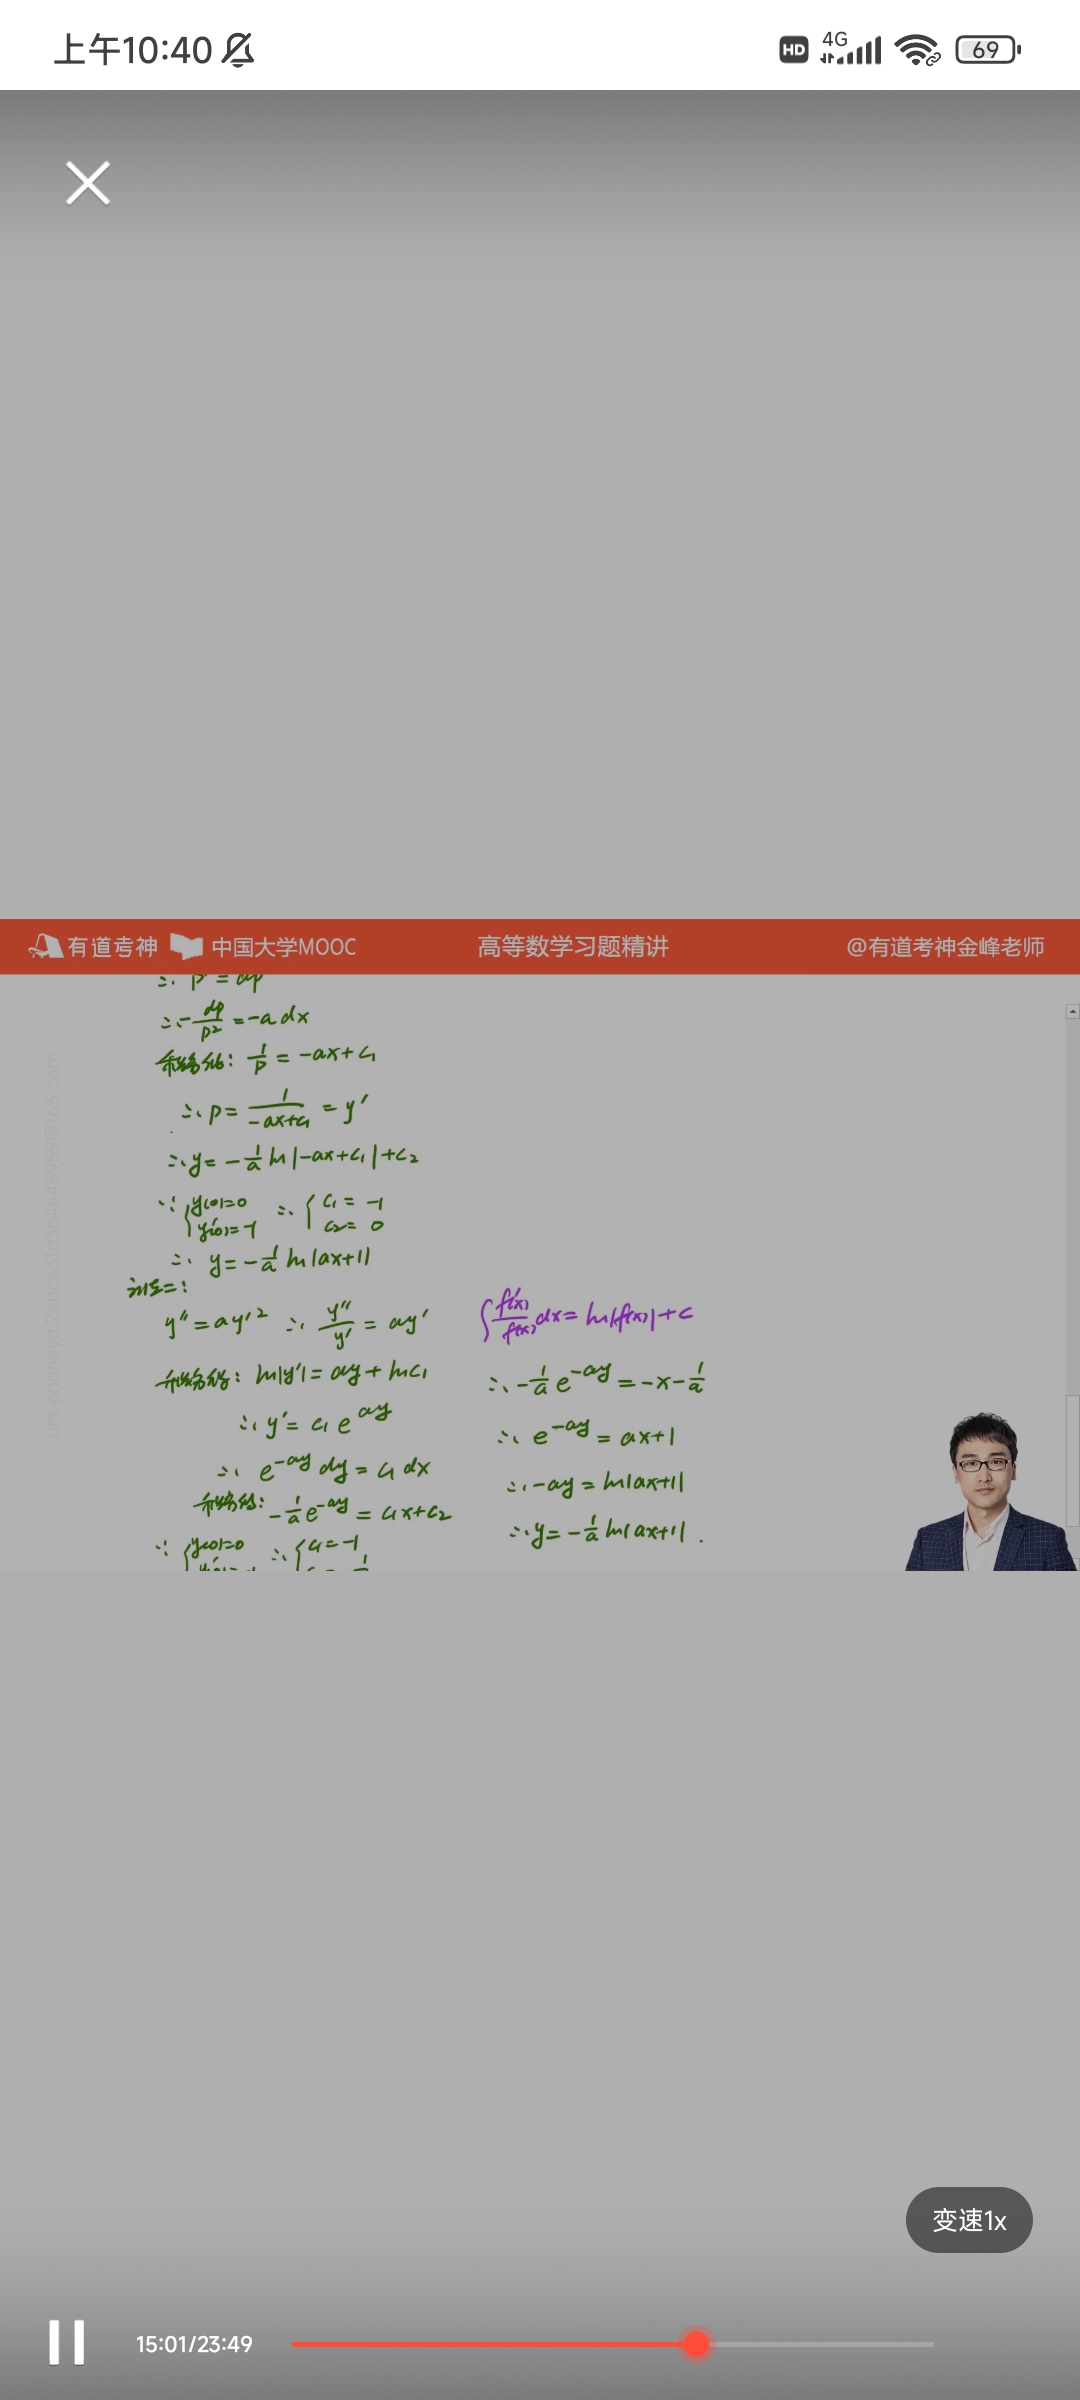 上午10:40 HD 4G 69
有道考神 中国大学MOOC 高等数学习题精讲 @有道考神金峰老师
∴ p' = ap²
∴ -dp/p² = -a dx
两端积分: 1/p = -ax+C₁
∴ p = 1/(-ax+C₁) = y'
∴ y = -1/a ln|-ax+C₁|+C₂
∵ { y(0)=0 y'(0)=-1 ∴ { C₁ = -1 C₂ = 0
∴ y = -1/a ln|ax+1|
法二:
y'' = ay'² ∴ y''/y' = ay'
两端积分: ln|y'| = ay + lnC₁
∴ y' = C₁e^ay
∴ e^-ay dy = C₁ dx
两端积分: -1/a e^-ay = C₁x+C₂
∵ { y(0)=0 ∴ { C₁=-1
∫ f'(x)/f(x) dx = ln|f(x)|+C
∴ -1/a e^-ay = -x-1/a
∴ e^-ay = ax+1
∴ -ay = ln|ax+1|
∴ y = -1/a ln|ax+1|.
变速1x
15:01/23:49